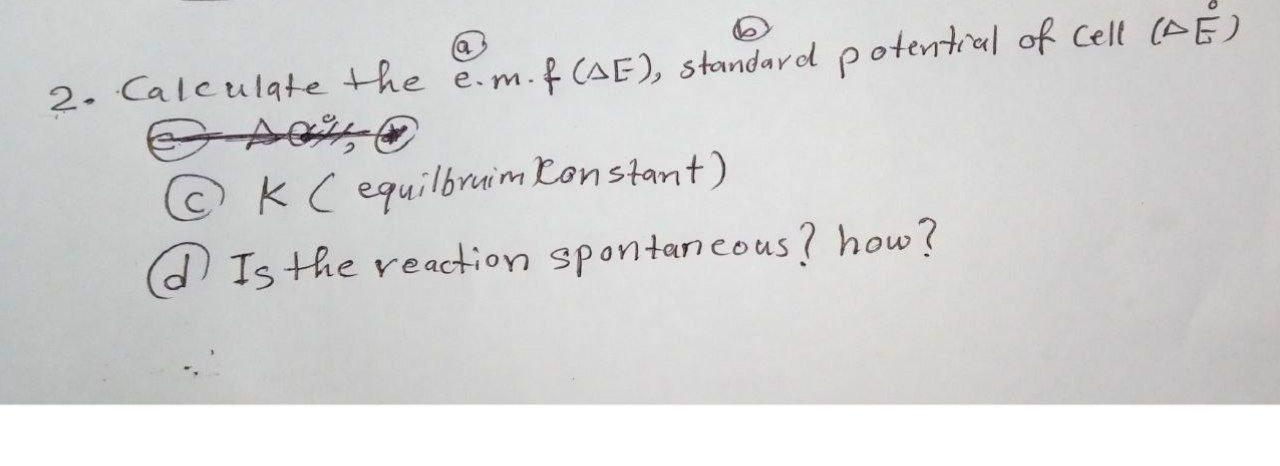 2. Calculate the ⓐ e.m.f (ΔE), ⓑ standard potential of cell (ΔE°)
ⓒ K ( equilbruim Konstant)
ⓓ Is the reaction spontaneous? how?